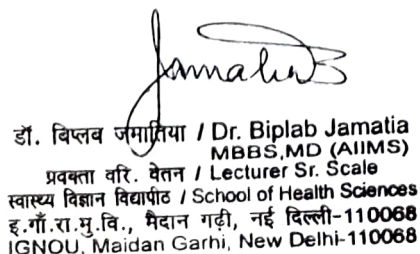 Jamatia B
डॉ. बिप्लब जमातिया / Dr. Biplab Jamatia
MBBS,MD (AIIMS)
प्रवक्ता वरि. वेतन / Lecturer Sr. Scale
स्वास्थ्य विज्ञान विद्यापीठ / School of Health Sciences
इ.गाँ.रा.मु.वि., मैदान गढ़ी, नई दिल्ली-110068
IGNOU, Maidan Garhi, New Delhi-110068